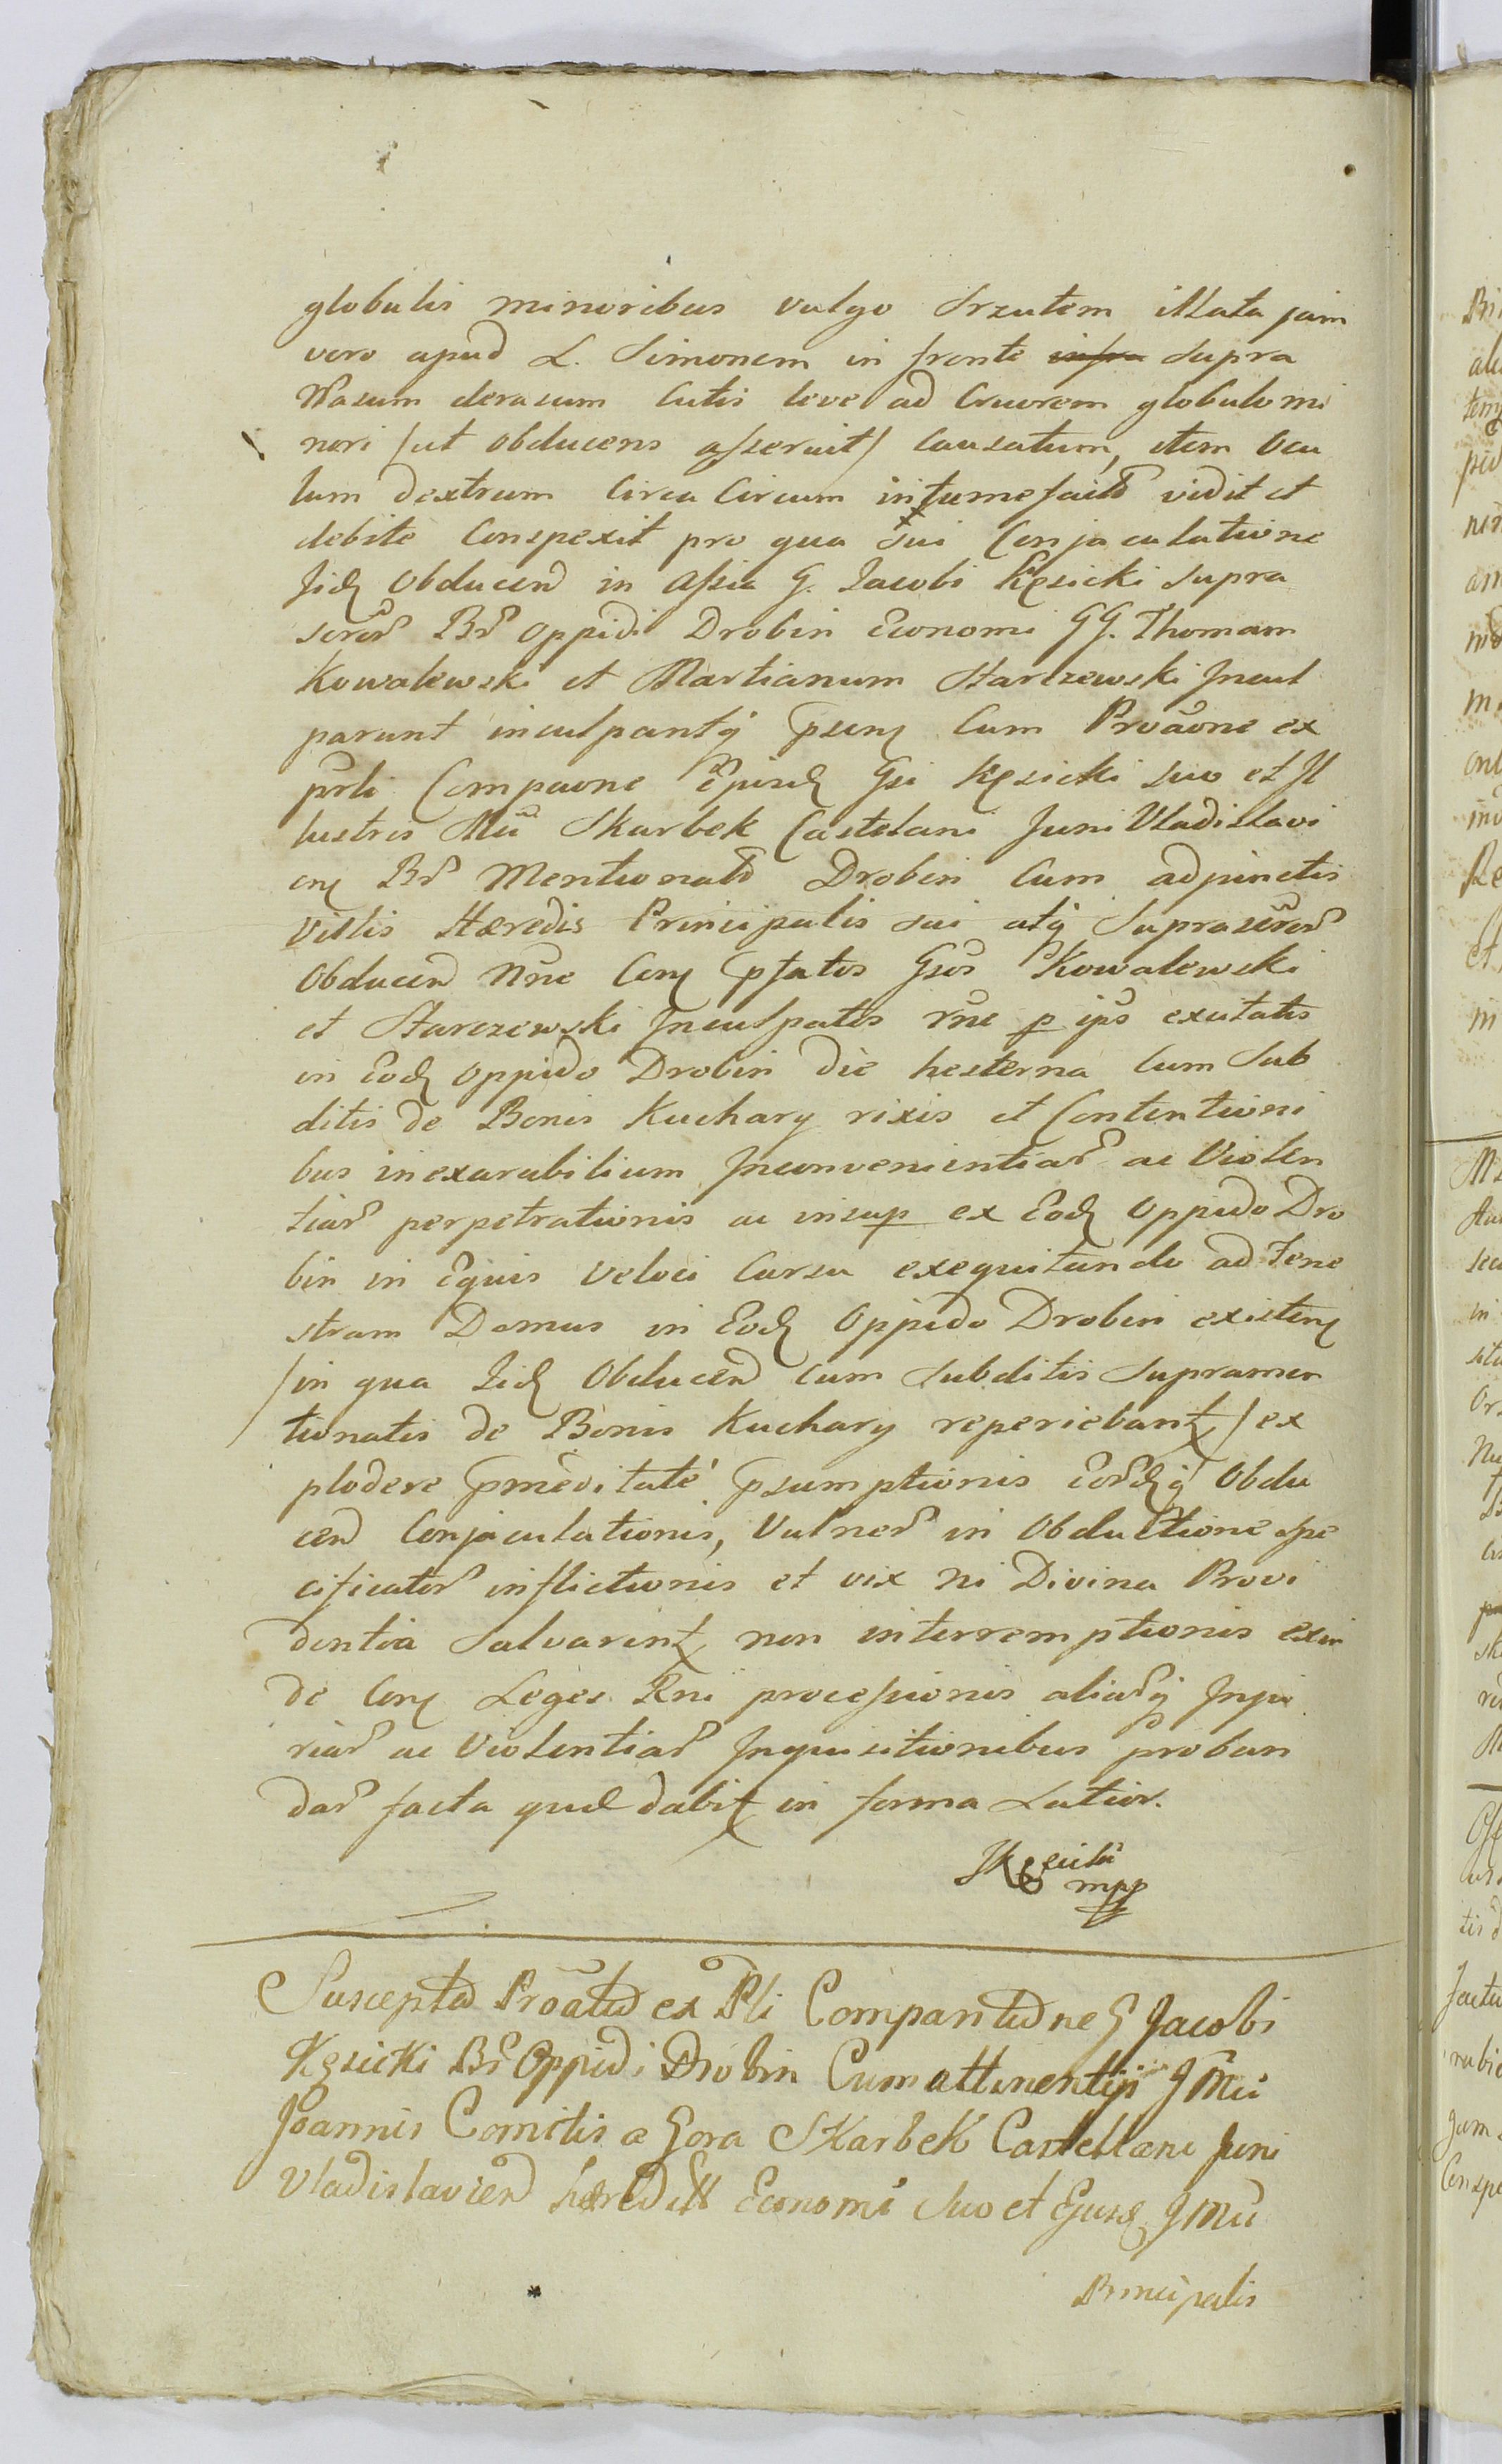 globulis minoribus vulgo Srzutem illata jam
vero apud L. Simonem in fronte infra supra
Nasum derasum Cutis leve ad Cruorem globulo mi
nori /ut obducens asseruit/ Causatum, item Ocu
lum dextrum Circa Circum intumefactũ vidit et
debite Conspexit pro qua sui Conjaculatione
Iid. Obducen in assia G. Jacobi Kęsicki supra
Br. Oppidi Drobin Economi GG. Thomam
Kowalewski et Martianum Starczewski Incul
parunt inculpantq. psen. Cum Proãone ex
prli Compaone Ejusd. Gsi Kęsicki suo et Il
lustris Mci Skarbek Castelani Juni Vladislavi
en. Br. Mentionatr. Drobin Cum adjunctis
Villis Hæredis Principalis sui atq. Suprascr.
Obducen Nne Con. pfatos Gsos Kowalewski
et Starczewski Inculpatos rne p ips excitatis
in Eod. Oppido Drobin die hesterna Cum Sub
ditis de Bonis Kuchary rixis et Contentioni
bus inexarabilium Inconvenientiar. ac Violen
tiar. perpetrationis ac insup ex Eod. Oppido Dro
bin in Equis veloci Cursu exequitando ad Fene
stram Domus in Eod. Oppido Drobin existen.
/in qua Iid. Obducen cum subditis supramen
tionatis de Bonis Kuchary reperiebant./ ex
plodere pmeditate psumptionis Eord.q. Obdu
cen Conjaculationis, Vulner. in Obductione spe
cificator. inflictionis et vix ni Divina Provi
dentia Salvarint. non interremptionis exin
de Con. Leges Rni processionis aliar.q. Inju
riar. ac Violentiar. Inquisitionibus proban
dar. facta quæ dabit. in forma Latior.
JKęsicki
mpp
Suscepta Proãta ex Pli Comparitione G Jacobi
Kęsicki Br. Oppidi Drobin Cum attinentijs J Mci
Joannis Comitis a Gora Skarbek Castellani Juni
Vladislavien hæredis Economi suo et Ejusd. J Mci
Principalis